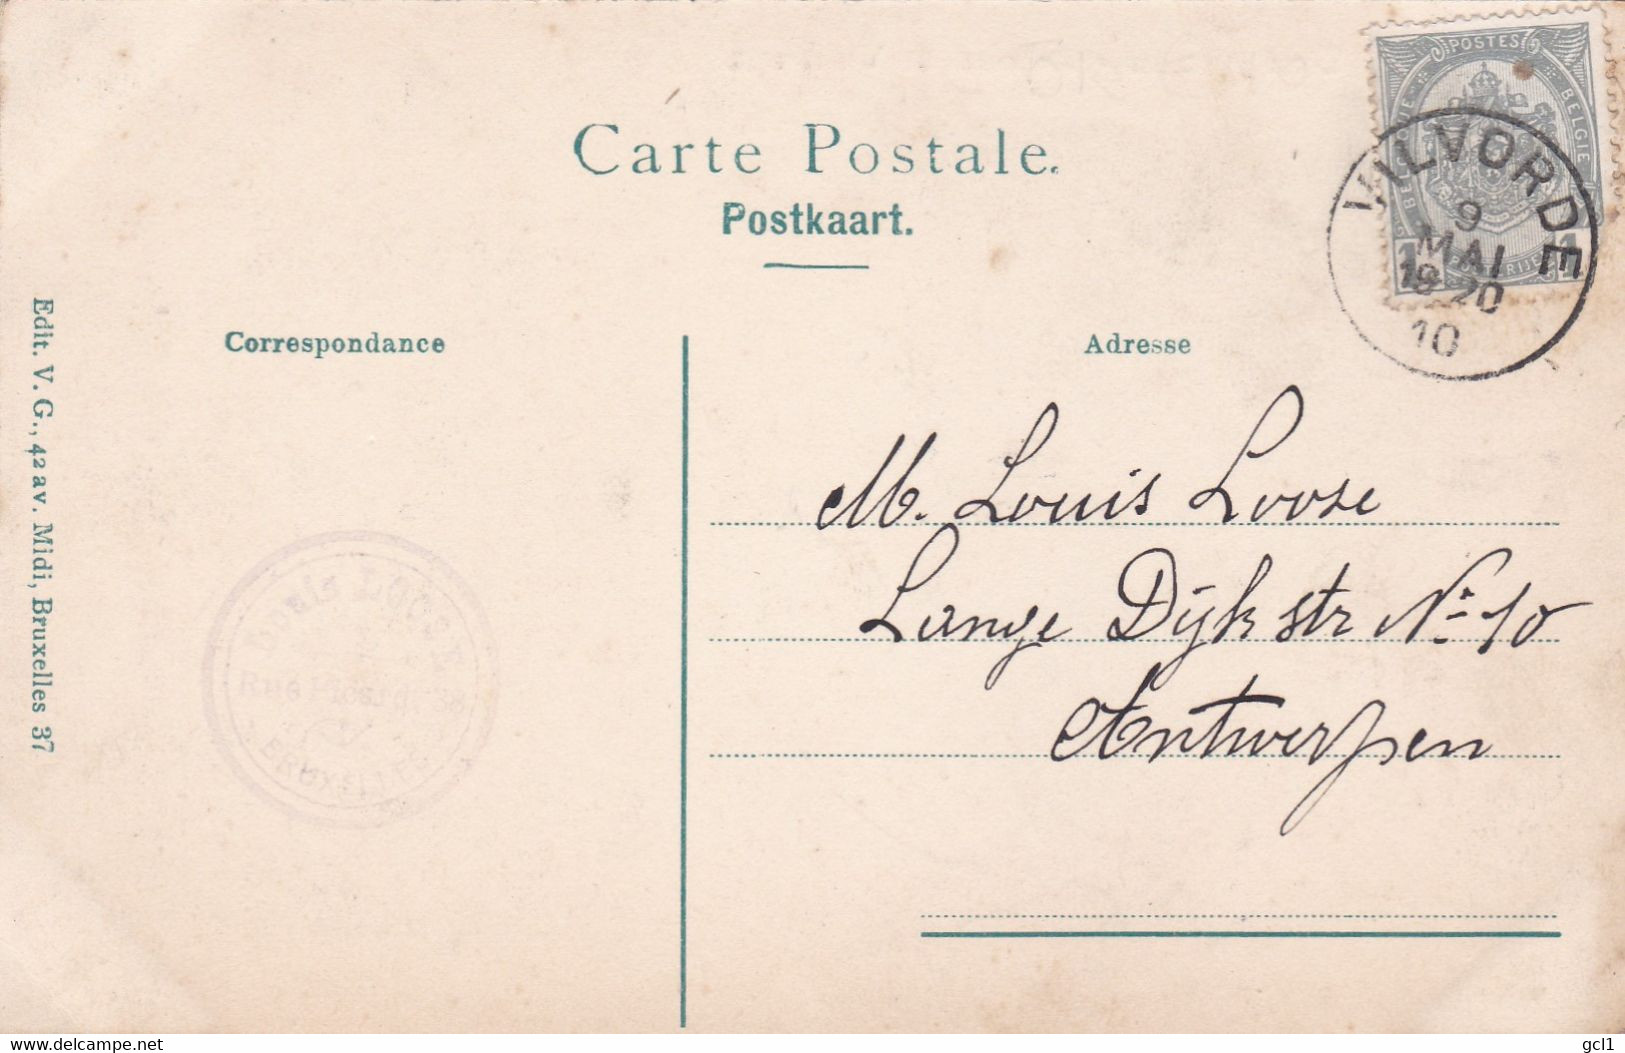 POSTES
BELGIQUE
BELGIE
1 1
VILVORDE
9
MAI
18-20
10
Carte Postale.
Postkaart.
Correspondance
Adresse
Edit. V. G., 42 av. Midi, Bruxelles 37
M. Louis Loose
Lange Dijkstr No 10
Antwerpen
Louis
Rue Picard
BRUXELLES
www.delcampe.net
gcl1